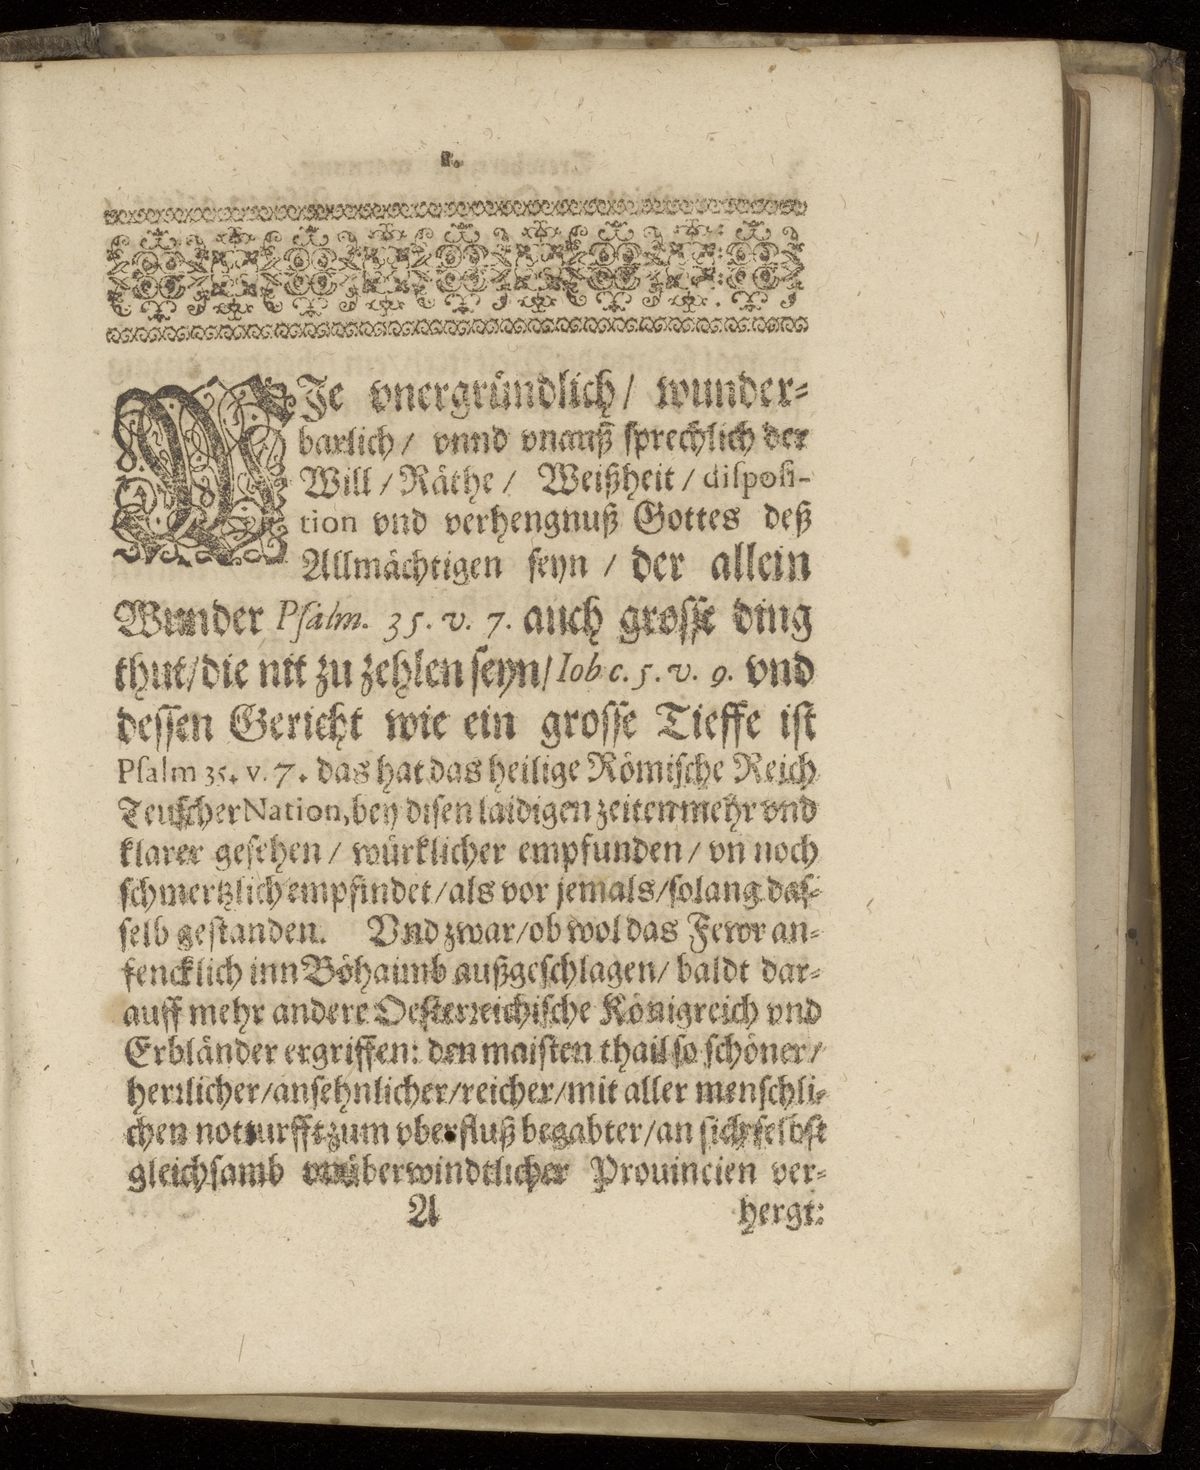 1.
WJe vnergründlich/ wunder-
barlich/ vnnd vnauß sprechlich der
Will/ Räthe/ Weißheit/ disposi-
tion vnd verhengnuß Gottes deß
Allmächtigen seyn/ der allein
Wunder Psalm. 35. v. 7. auch grosse ding
thut/die nit zu zehlen seyn/ Iob c. 5. v. 9. vnd
dessen Gericht wie ein grosse Tieffe ist
Psalm 35. v. 7. das hat das heilige Römische Reich
Teutscher Nation, bey disen laidigen zeiten mehr vnd
klarer gesehen/ würklicher empfunden/ vñ noch
schmertzlich empfindet/als vor jemals/solang das-
selb gestanden. Vnd zwar/ob wol das Fewr an-
fencklich inn Böhaimb außgeschlagen/ baldt dar-
auff mehr andere Oesterreichische Königreich vnd
Erbländer ergriffen: den maisten thail so schöner/
herrlicher/ansehnlicher/reicher/mit aller menschli-
chen notturfft zum vberfluß begabter/an sich selbst
gleichsamb vnüberwindtlicher Prouincien ver-
A hergt: